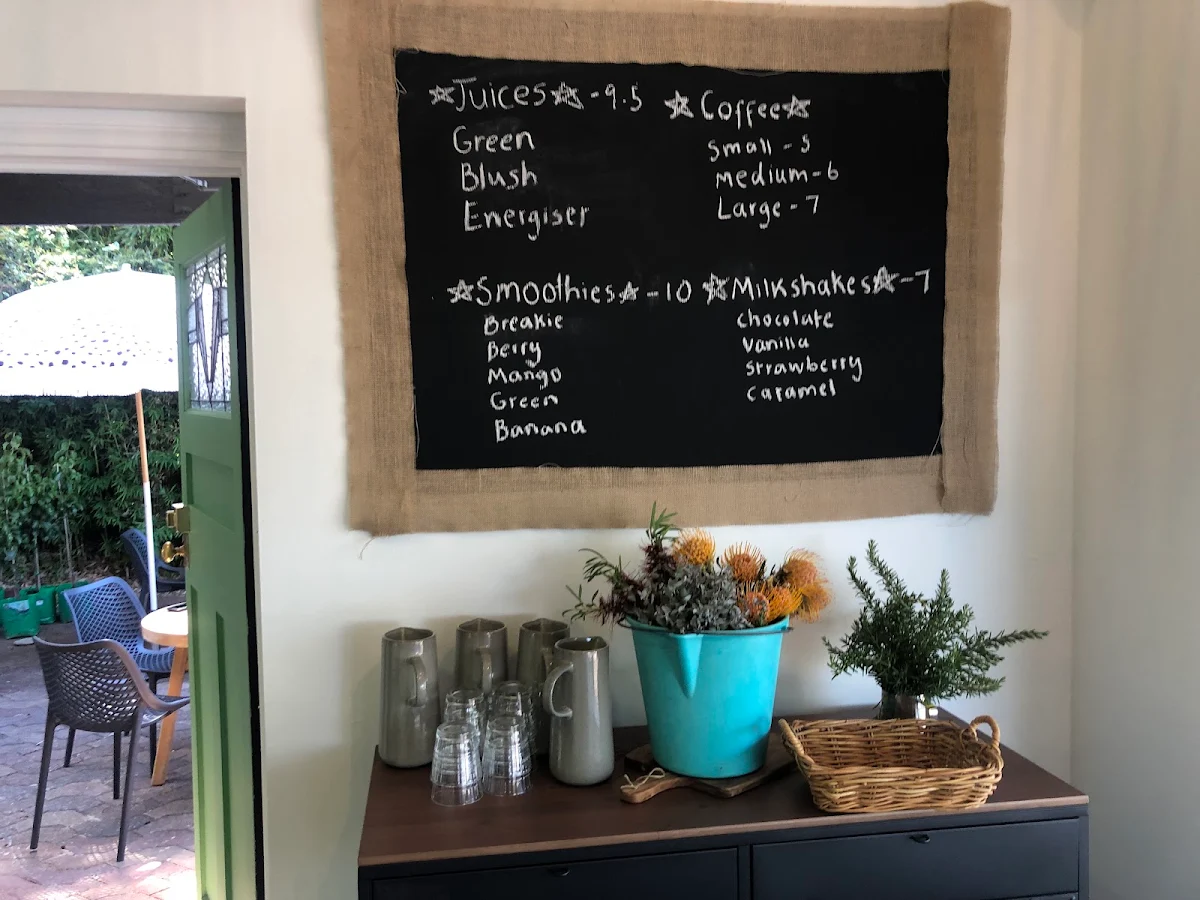 ☆Juices☆ - 9.5
Green
Blush
Energiser
☆Coffee☆
Small - 5
Medium - 6
Large - 7
☆Smoothies☆ - 10
Breakie
Berry
Mango
Green
Banana
☆Milkshakes☆ - 7
Chocolate
Vanilla
Strawberry
Caramel